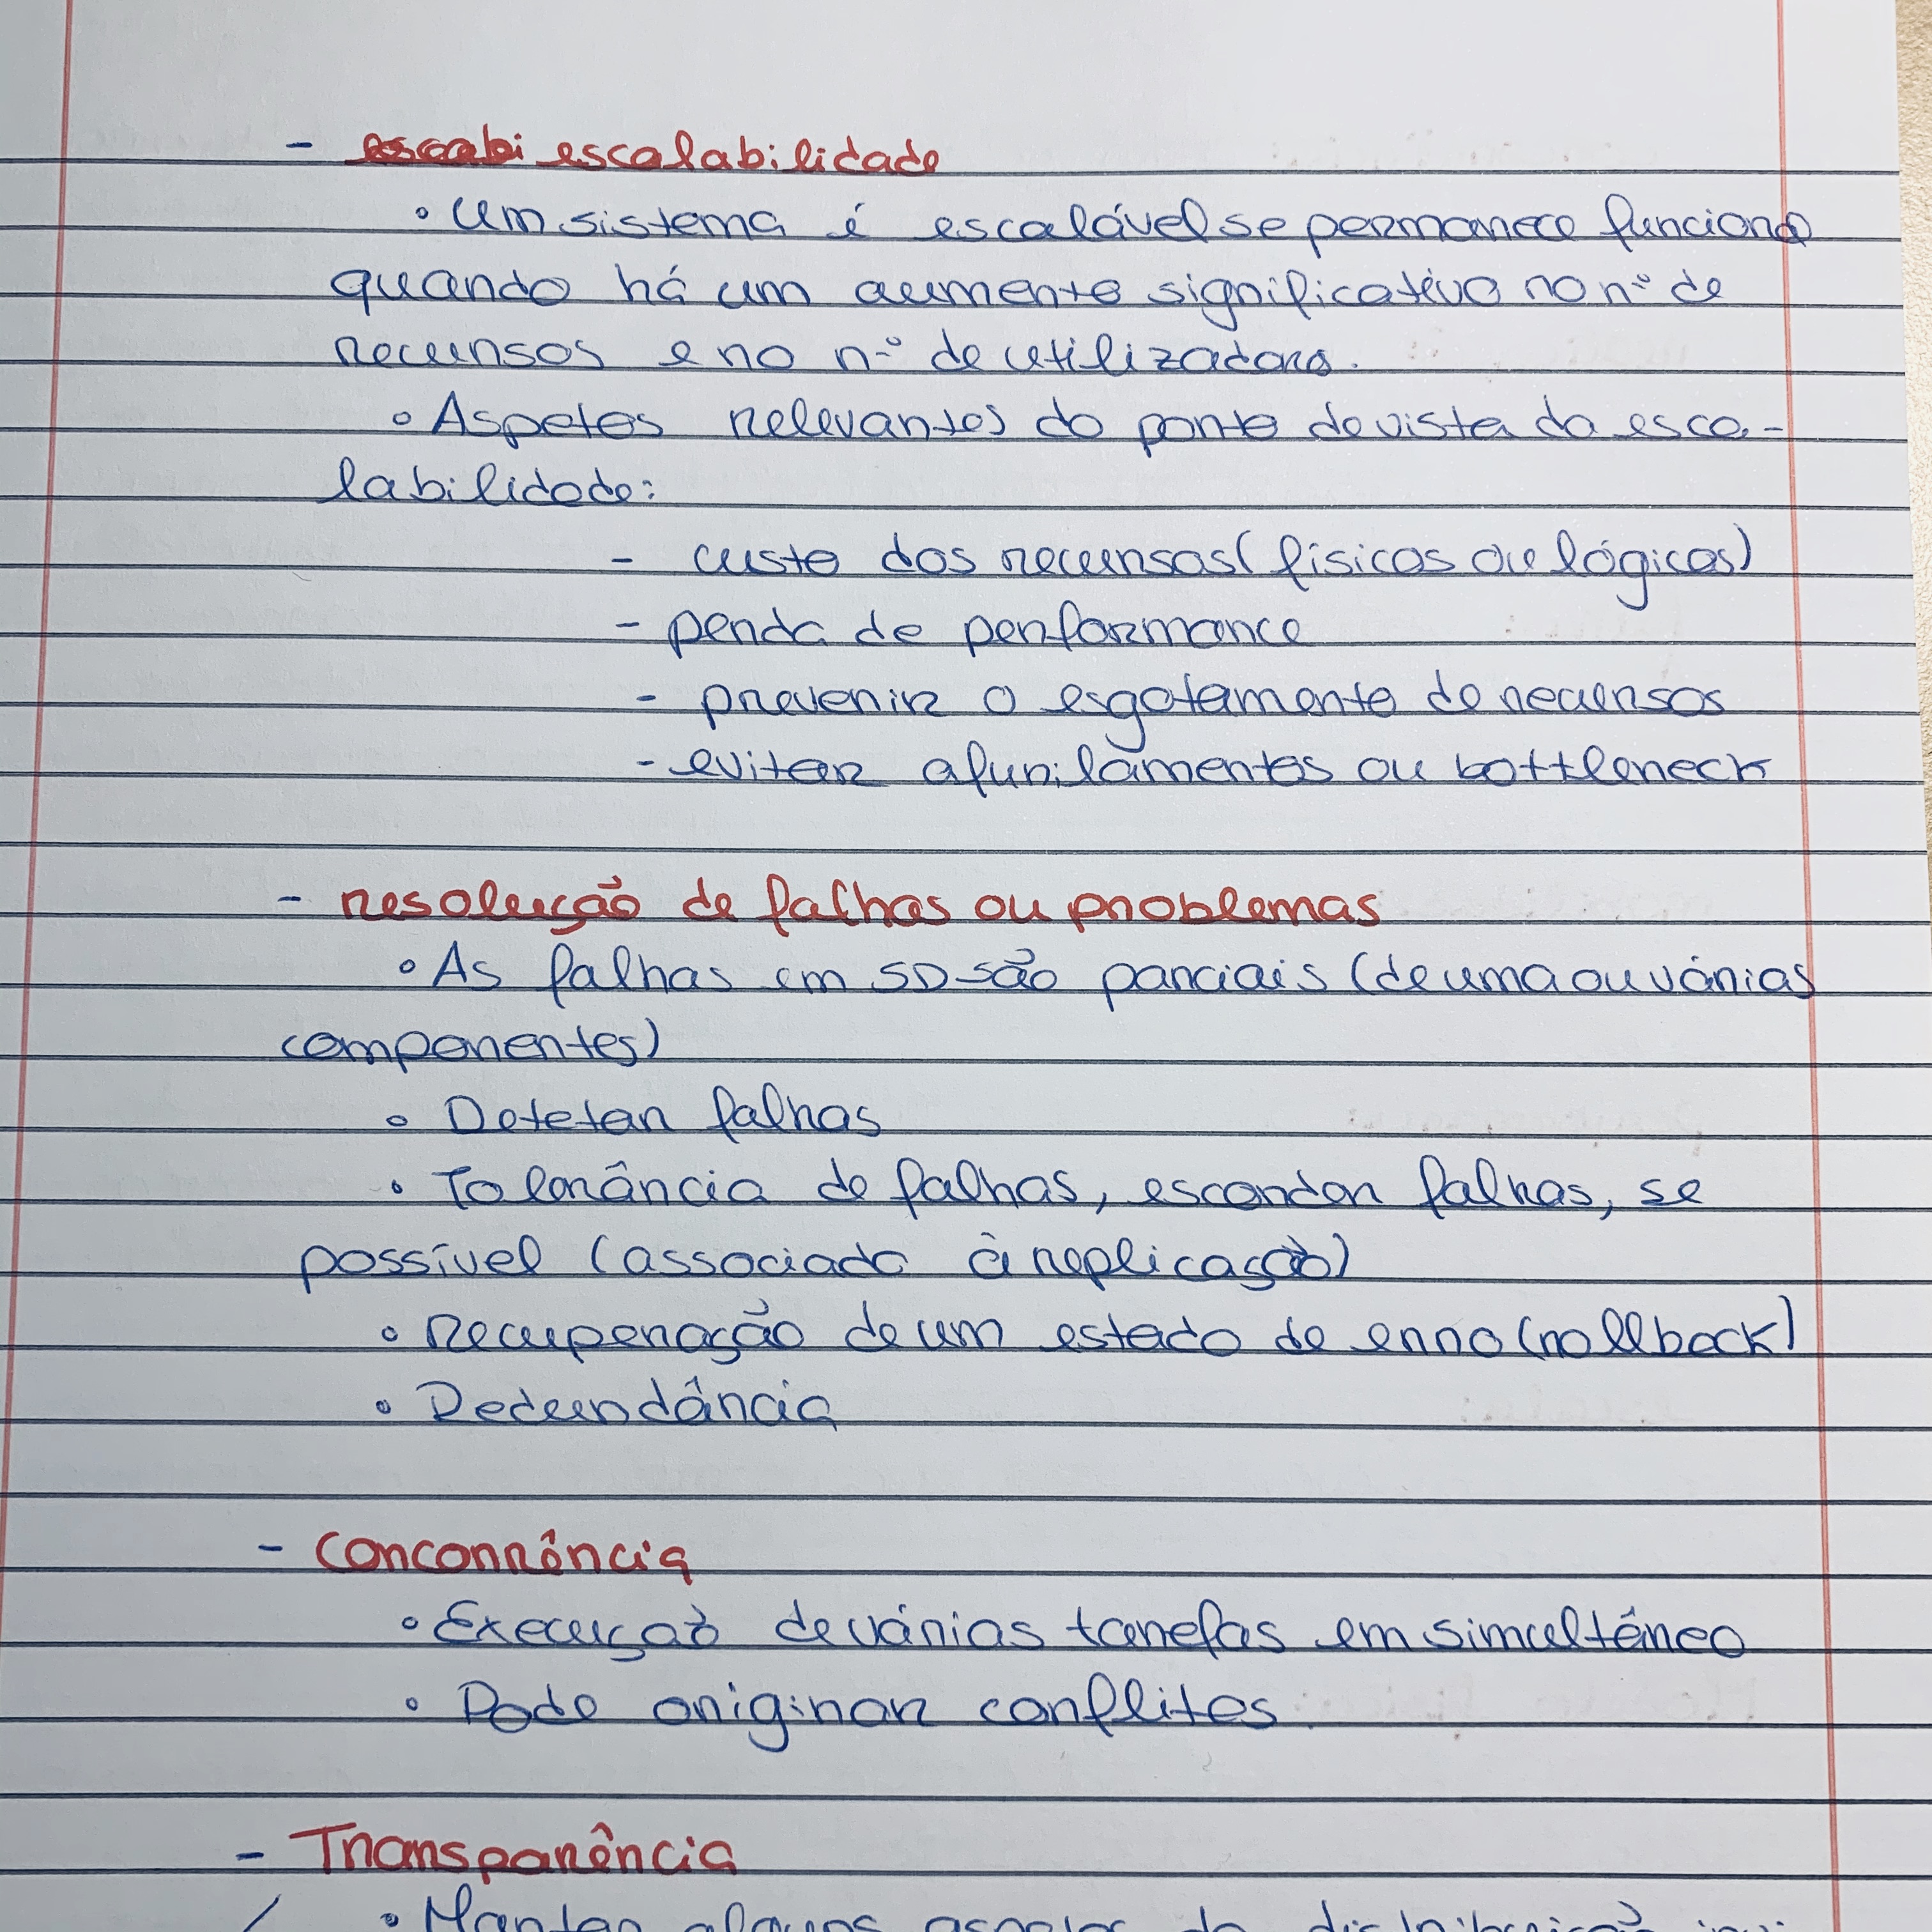 - escabi escalabilidade
• Um sistema é escalável se permanece funciona
quando há um aumento significativo no nº de
recursos e no nº de utilizadores.
• Aspetos relevantes do ponto de vista da esca-
labilidade:
- custo dos recursos (físicos ou lógicos)
- perda de performance
- prevenir o esgotamento de recursos
- evitar afunilamentos ou bottleneck
- resolução de falhas ou problemas
• As falhas em SD são parciais (de uma ou várias
componentes)
• Detetar falhas
• Tolerância de falhas, esconder falhas, se
possível (associado à replicação)
• Recuperação de um estado de erro (rollback)
• Redundância
- Concorrência
• Execução de várias tarefas em simultâneo
• Pode originar conflitos.
- Transparência
• Manter alguns aspetos da distribuição